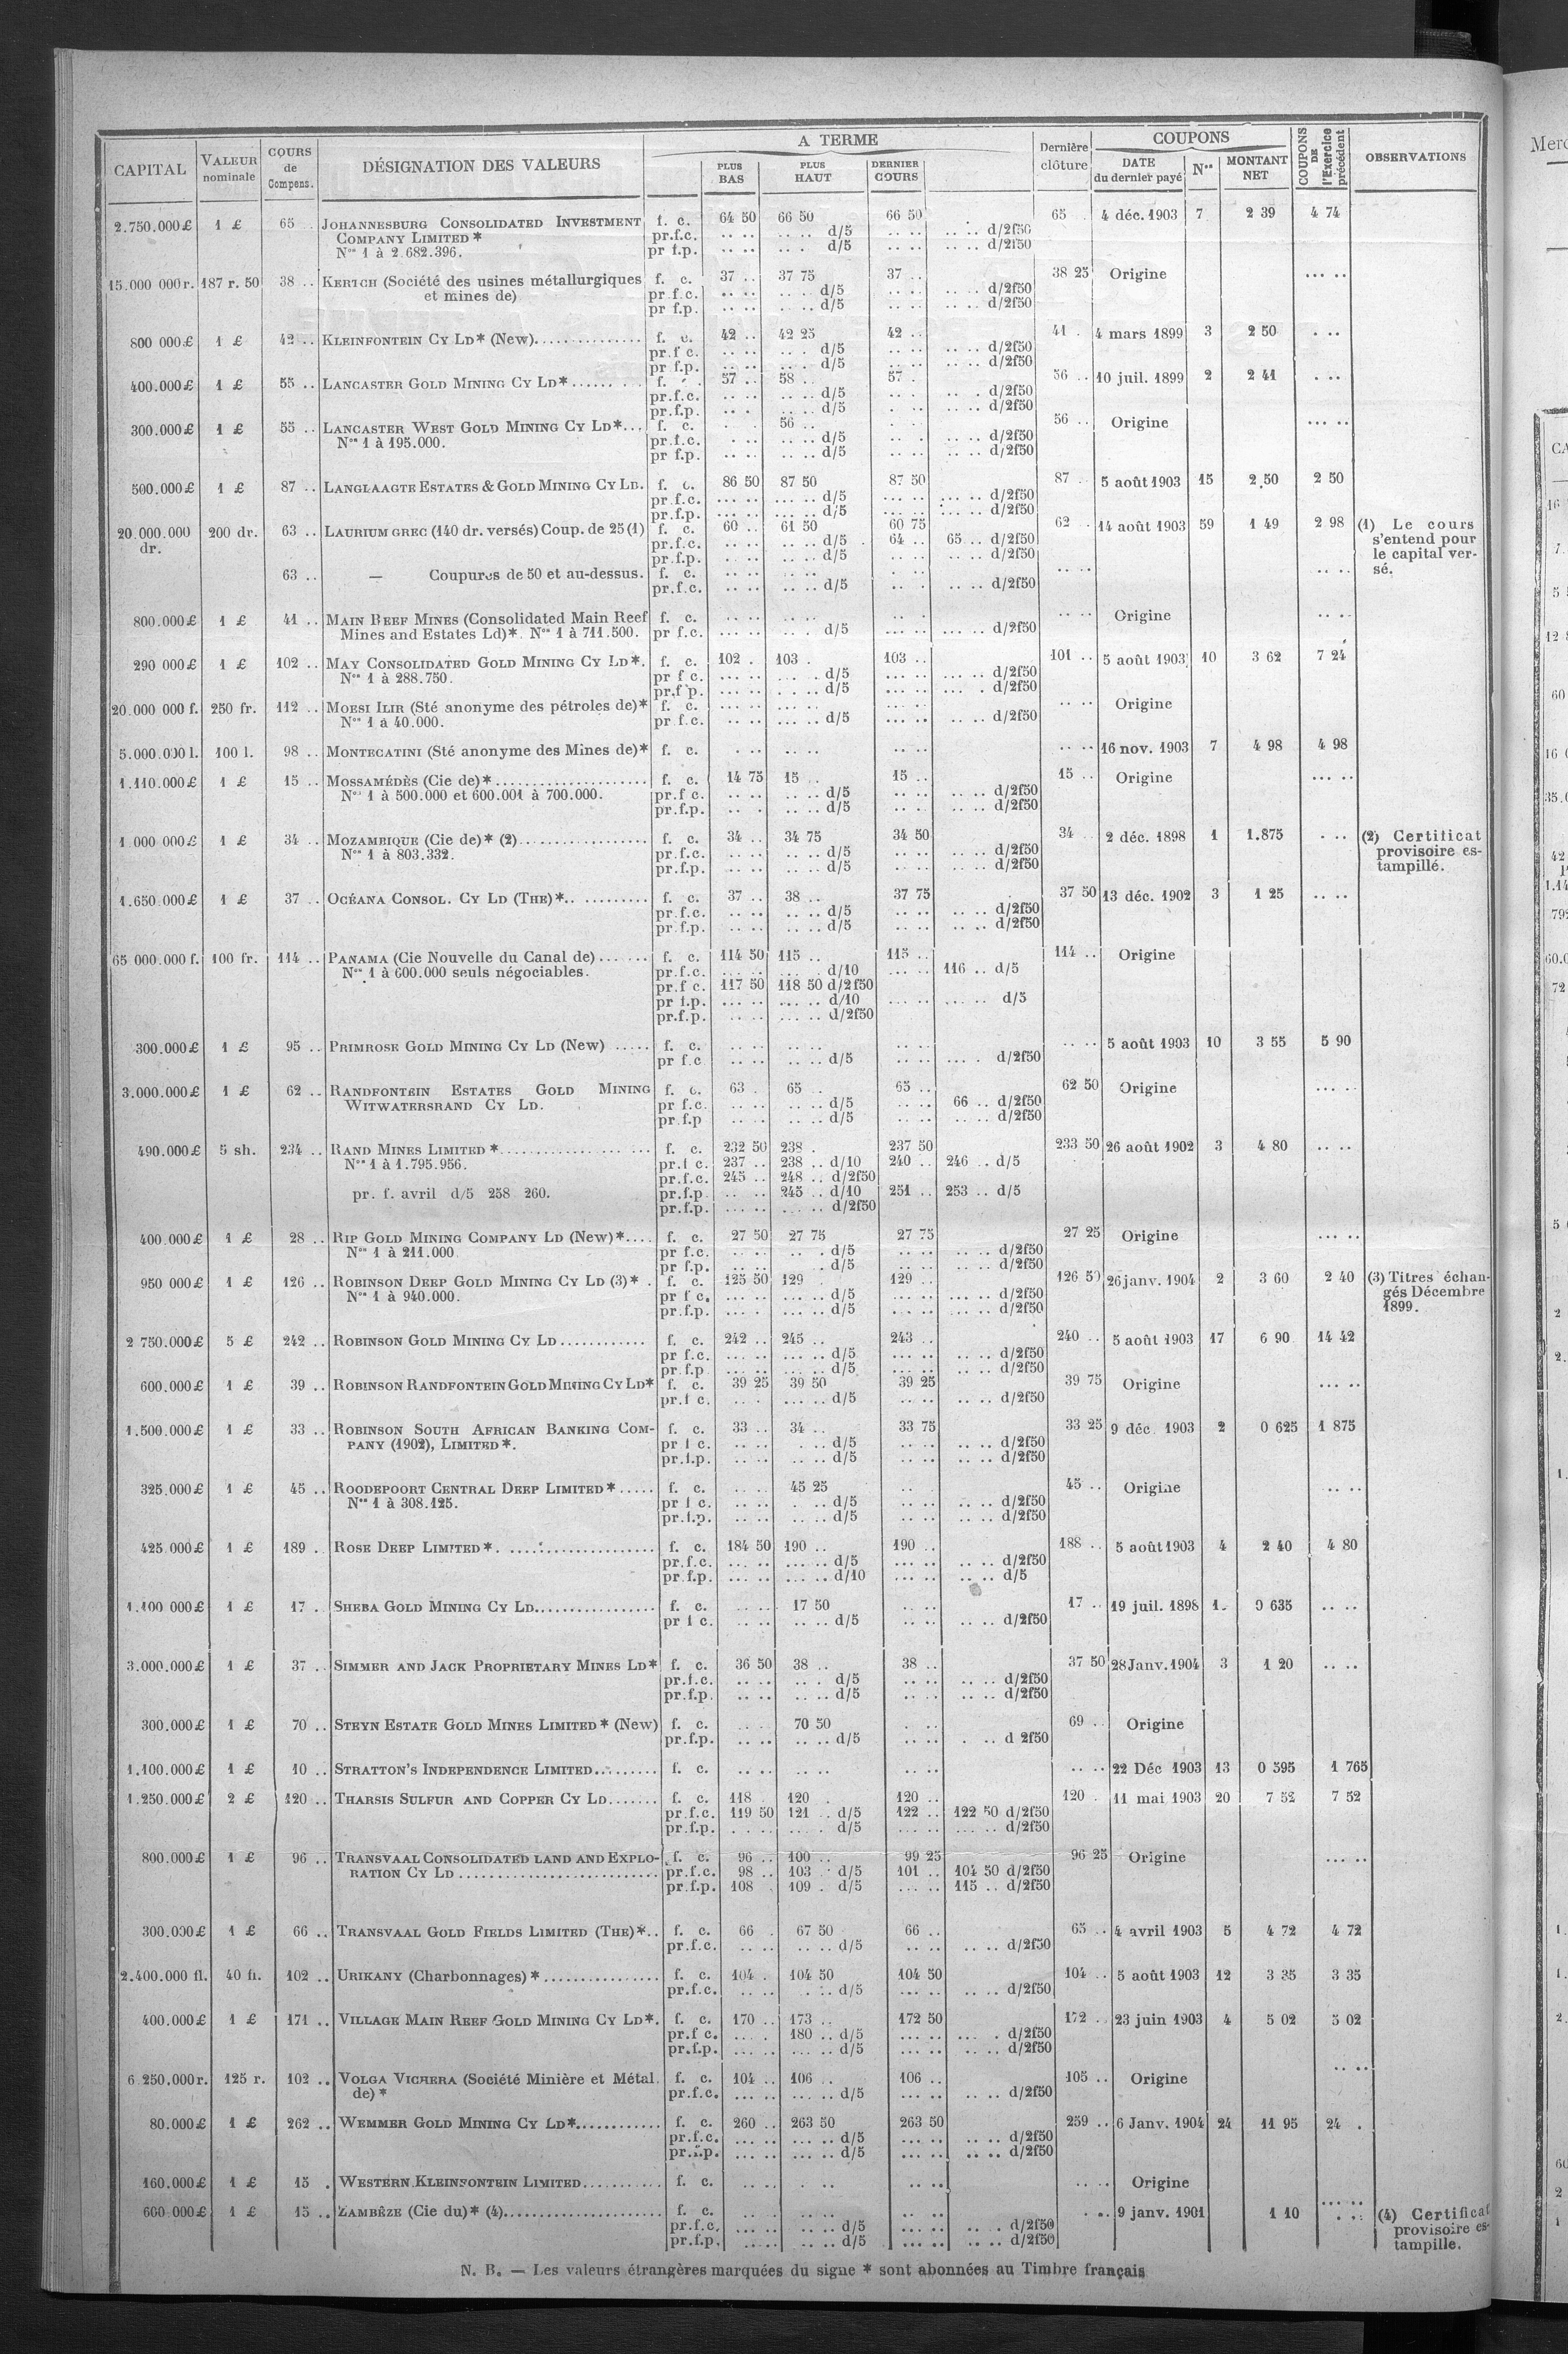 CAPITAL | VALEUR nominale | COURS de Compens. | DÉSIGNATION DES VALEURS | A TERME | PLUS BAS | PLUS HAUT | DERNIER COURS | Dernière clôture | COUPONS | DATE du dernier payé | Nos | MONTANT NET | COUPONS DE l'Exercice précédent | OBSERVATIONS
2.750.000 £ 1 £ 65 .. JOHANNESBURG CONSOLIDATED INVESTMENT f. c. 64 50 66 50 66 50 65 . 4 déc. 1903 7 2 39 4 74
COMPANY LIMITED * pr.f.c. .. .. .. .. d/5 .. .. .. .. d/2f50
Nos 1 à 2.682.396. pr f.p. .. .. .. . d/5 .. .. .. .. d/2f50
15.000 000 r. 187 r. 50 38 .. KERTCH (Société des usines métallurgiques f. c. 37 .. 37 75 37 .. 38 25 Origine ... ..
et mines de) pr f.c. .. .. .. .. d/5 .. .. .. .. d/2f50
pr f.p. .. .. .. .. d/5 .. .. .. .. d/2f50
800 000 £ 1 £ 42 .. KLEINFONTEIN CY LD* (New).............. f. c. 42 .. 42 25 42 .. 41 . 4 mars 1899 3 2 50 . ..
pr.f c. .. .. .. . d/5 .. .. .. .. d/2f50
pr f.p. .. .. .. . d/5 .. .. .. .. d/2f50
400.000 £ 1 £ 55 .. LANCASTER GOLD MINING CY LD*...... f. . 57 .. 58 .. 57 . 56 .. 10 juil. 1899 2 2 41 . ..
pr.f.c. .. .. .. .. d/5 .. . .. . d/2f50
pr.f.p. .. . .. .. d/5 . .. .. .. d/2f50
300.000 £ 1 £ 55 .. LANCASTER WEST GOLD MINING CY LD*... f. c. 56 .. 56 .. Origine ... ..
Nos 1 à 195.000. pr.f.c. . .. .. .. d/5 .. .. .. .. d/2f50
pr f.p. .. .. .. .. d/5 .. .. .. .. d/2f50
500.000 £ 1 £ 87 .. LANGLAAGTE ESTATES & GOLD MINING CY LD. f. c. 86 50 87 50 87 50 87 . 5 août 1903 15 2.50 2 50
pr.f.c. ... .. ... .. d/5 ... .. ... .. d/2f50
pr.f.p. ... .. ... .. d/5 ... .. ... .. d/2f50
20.000.000 dr. 200 dr. 63 .. LAURIUM GREC (140 dr. versés) Coup. de 25 (1) f. c. 60 .. 61 50 60 75 62 . 14 août 1903 59 1 49 2 98 (1) Le cours s'entend pour le capital versé.
pr.f.c. .. .. .. .. d/5 64 .. 65 .. d/2f50
pr.f.p. .. .. .. .. d/5 .. .. .. .. d/2f50
63 .. — Coupures de 50 et au-dessus. f. c. .. .. .. .. . .. .. .. .. ..
pr.f.c. .. .. .. .. d/5 .. .. .. .. d/2f50
800.000 £ 1 £ 41 .. MAIN REEF MINES (Consolidated Main Reef f. c. .. .. .. .. .. . .. .. Origine .. ..
Mines and Estates Ld)*. Nos 1 à 711.500. pr f.c. ... .. .. . d/5 ... .. ... .. d/2f50
290 000 £ 1 £ 102 .. MAY CONSOLIDATED GOLD MINING CY LD*. f. c. 102 . 103 . 103 .. 101 .. 5 août 1903 10 3 62 7 24
Nos 1 à 288.750. pr f c. ... .. ... . d/5 ... .. ... .. d/2f50
pr.f p. ... .. . .. .. d/5 ... .. ... . d/2f50
20.000 000 f. 250 fr. 112 .. MOESI ILIR (Sté anonyme des pétroles de)* f. c. ... .. ... .. ... .. .. .. Origine
Nos 1 à 40.000. pr f.c. .. .. ... .. d/5 ... .. .. .. d/2f50
5.000.000 l. 100 l. 98 .. MONTECATINI (Sté anonyme des Mines de)* f. c. . .. .. .. .. .. .. .. 16 nov. 1903 7 4 98 4 98
1.110.000 £ 1 £ 15 .. MOSSAMÉDÈS (Cie de)*.................... f. c. 14 75 15 .. 15 .. 15 .. Origine ... ..
Nos 1 à 500.000 et 600.001 à 700.000. pr.f c. .. .. .. .. d/5 .. .. .. .. d/2f50
pr.f.p. .. . .. .. d/5 .. . .. .. d/2f50
1.000 000 £ 1 £ 34 .. MOZAMBIQUE (Cie de)* (2)................. f. c. 34 .. 34 75 34 50 34 .. 2 déc. 1898 1 1.875 . .. (2) Certificat provisoire estampillé.
Nos 1 à 803.332. pr.f.c. .. .. .. .. d/5 .. .. .. .. d/2f50
pr.f.p. .. .. .. .. d/5 .. .. .. .. d/2f50
1.650.000 £ 1 £ 37 .. OCÉANA CONSOL. CY LD (THE)*.. ......... f. c. 37 .. 38 .. 37 75 37 50 13 déc. 1902 3 1 25 .. ..
pr.f.c. .. .. .. .. d/5 .. .. .. .. d/2f50
pr.f.p. .. .. .. .. d/5 .. .. .. .. d/2f50
65 000.000 f. 100 fr. 114 .. PANAMA (Cie Nouvelle du Canal de)...... f. c. 114 50 115 .. 115 .. 114 .. Origine
Nos 1 à 600.000 seuls négociables. pr.f.c. ... .. ... . d/10 ... .. 116 .. d/5
pr.f c. 117 50 118 50 d/2f50
pr f.p. ... .. ... .. d/10 ... .. ... .. d/5
pr.f.p. .. .. ... .. d/2f50
300.000 £ 1 £ 95 .. PRIMROSE GOLD MINING CY LD (New) ..... f. c. .. .. .. .. .. .. .. .. 5 août 1903 10 3 55 5 90
pr f.c .. .. .. .. d/5 .. .. ... . d/2f50
3.000.000 £ 1 £ 62 .. RANDFONTEIN ESTATES GOLD MINING f. c. 63 . 65 .. 65 .. 62 50 Origine ... ..
WITWATERSRAND CY LD. pr f.c. .. .. .. .. d/5 .. .. 66 .. d/2f50
pr.f.p .. .. .. .. d/5 .. .. .. .. d/2f50
490.000 £ 5 sh. 234 .. RAND MINES LIMITED *................... f. c. 232 50 238 . 237 50 233 50 26 août 1902 3 4 80 .. ..
Nos 1 à 1.795.956. pr.f c. 237 .. 238 .. d/10 240 .. 246 .. d/5
pr.f.c. 245 .. 248 .. d/2f50
pr. f. avril d/5 258 260. pr.f.p. .. .. 245 .. d/10 251 .. 253 .. d/5
pr.f.p. ... .. ... .. d/2f50
400.000 £ 1 £ 28 .. RIP GOLD MINING COMPANY LD (New)*.... f. c. 27 50 27 75 27 75 27 25 Origine ... ..
Nos 1 à 211.000. pr f.c. .. .. .. . d/5 .. .. .. .. d/2f50
pr f.p. .. .. . d/5 .. .. .. .. d/2f50
950 000 £ 1 £ 126 .. ROBINSON DEEP GOLD MINING CY LD (3)* . f. c. 125 50 129 . 129 .. 126 50 26 janv. 1904 2 3 60 2 40 (3) Titres échangés Décembre 1899.
Nos 1 à 940.000. pr f c. ... .. ... .. d/5 ... .. .. .. d/2f50
pr.f.p. ... . ... .. d/5 ... .. ... .. d/2f50
2 750.000 £ 5 £ 242 .. ROBINSON GOLD MINING CY LD............ f. c. 242 .. 245 .. 243 .. 240 .. 5 août 1903 17 6 90 14 42
pr f.c. ... .. ... .. d/5 ... .. .. .. d/2f50
pr f.p ... .. ... .. d/5 ... .. .. .. d/2f50
600.000 £ 1 £ 39 .. ROBINSON RANDFONTEIN GOLD MINING CY LD* f. c. 39 25 39 50 39 25 39 75 Origine ... ..
pr.f c. .. . ... .. d/5 .. .. .. .. d/2f50
1.500.000 £ 1 £ 33 .. ROBINSON SOUTH AFRICAN BANKING COM- f. c. 33 .. 34 .. 33 75 33 25 9 déc. 1903 2 0 625 1 875
PANY (1902), LIMITED *. pr f c. .. .. . .. d/5 .. .. .. .. d/2f50
pr.f.p. .. .. .. .. d/5 .. .. .. .. d/2f50
325.000 £ 1 £ 45 .. ROODEPOORT CENTRAL DEEP LIMITED *..... f. c. .. .. 45 25 .. 45 .. Origine .. ..
Nos 1 à 308.125. pr f c. .. .. . .. d/5 .. .. .. .. d/2f50
pr.f.p. .. .. .. .. d/5 .. .. .. .. d/2f50
425.000 £ 1 £ 189 . ROSE DEEP LIMITED *. ................... f. c. 184 50 190 .. 190 .. 188 .. 5 août 1903 4 2 40 4 80
pr.f.c. ... .. ... .. d/5 ... .. .. .. d/2f50
pr.f.p. ... .. ... .. d/10 ... .. .. .. d/5
1.100 000 £ 1 £ 17 . SHEBA GOLD MINING CY LD................. f. c. .. .. 17 50 .. .. 17 .. 19 juil. 1898 1. 0 635 .. ..
pr f c. .. .. .. .. d/5 .. .. .. .. d/2f50
3.000.000 £ 1 £ 37 .. SIMMER AND JACK PROPRIETARY MINES LD* f. c. 36 50 38 .. 38 .. 37 50 28 Janv. 1904 3 1 20 .. ..
pr.f.c. .. .. .. . d/5 .. .. .. .. d/2f50
pr.f.p. .. .. .. .. d/5 .. .. .. .. d/2f50
300.000 £ 1 £ 70 .. STEYN ESTATE GOLD MINES LIMITED * (New) f. c. .. . 70 50 . .. 69 .. Origine
pr.f.p. .. .. .. .. d/5 .. .. . .. d 2f50
1.100.000 £ 1 £ 10 .. STRATTON'S INDEPENDENCE LIMITED......... f. c. .. .. .. .. .. .. .. .. 22 Déc 1903 13 0 595 1 765
1.250.000 £ 2 £ 120 .. THARSIS SULFUR AND COPPER CY LD....... f. c. 118 . 120 . 120 .. 120 . 11 mai 1903 20 7 52 7 52
pr.f.c. 119 50 121 .. d/5 122 .. 122 50 d/2f50
pr.f.p. . .. .. ... . d/5 ... .. ... .. d/2f50
800.000 £ 1 £ 96 .. TRANSVAAL CONSOLIDATED LAND AND EXPLO- f. c. 96 .. 100 .. 99 25 96 25 Origine ... ..
RATION CY LD .......................... pr.f.c. 98 .. 103 . d/5 101 .. 104 50 d/2f50
pr.f.p. 108 . 109 . d/5 ... .. 115 .. d/2f50
300.000 £ 1 £ 66 .. TRANSVAAL GOLD FIELDS LIMITED (THE)*.. f. c. 66 . 67 50 66 .. 65 .. 4 avril 1903 5 4 72 4 72
pr.f.c. .. .. .. .. d/5 .. .. .. .. d/2f50
2.400.000 fl. 40 fl. 102 .. URIKANY (Charbonnages) *............... f. c. 104 . 104 50 104 50 104 .. 5 août 1903 12 3 35 3 35
pr.f.c. .. .. . .. d/5 ... .. .. .. d/2f50
400.000 £ 1 £ 171 .. VILLAGE MAIN REEF GOLD MINING CY LD*. f. c. 170 .. 173 .. 172 50 172 .. 23 juin 1903 4 5 02 5 02
pr.f c. ... . 180 .. d/5 ... .. ... . d/2f50
pr.f.p. ... .. ... .. d/5 ... .. .. .. d/2f50
6.250.000 r. 125 r. 102 .. VOLGA VICHERA (Société Minière et Métal. f. c. 104 .. 106 .. 106 .. 105 .. Origine .. ..
de) * pr.f.c. ... .. ... .. d/5 ... .. .. .. d/2f50
80.000 £ 1 £ 262 .. WEMMER GOLD MINING CY LD*............ f. c. 260 .. 263 50 263 50 259 .. 6 Janv. 1904 24 11 95 24 .
pr.f.c. ... .. ... .. d/5 ... .. .. .. d/2f50
pr.f.p. ... .. ... .. d/5 ... .. .. .. d/2f50
160.000 £ 1 £ 15 . WESTERN KLEINFONTEIN LIMITED........... f. c. .. .. . .. .. .. .. .. Origine
600.000 £ 1 £ 15 .. ZAMBÈZE (Cie du)* (4)..................... f. c. .. .. .. .. .. .. . .. 9 janv. 1901 1 10 ... .. (4) Certificat provisoire estampille.
pr.f.c. ... .. .. .. d/5 ... .. .. . d/2f50
pr.f.p. ... .. .. .. d/5 ... .. .. .. d/2f50
N. B. — Les valeurs étrangères marquées du signe * sont abonnées au Timbre français
Merc